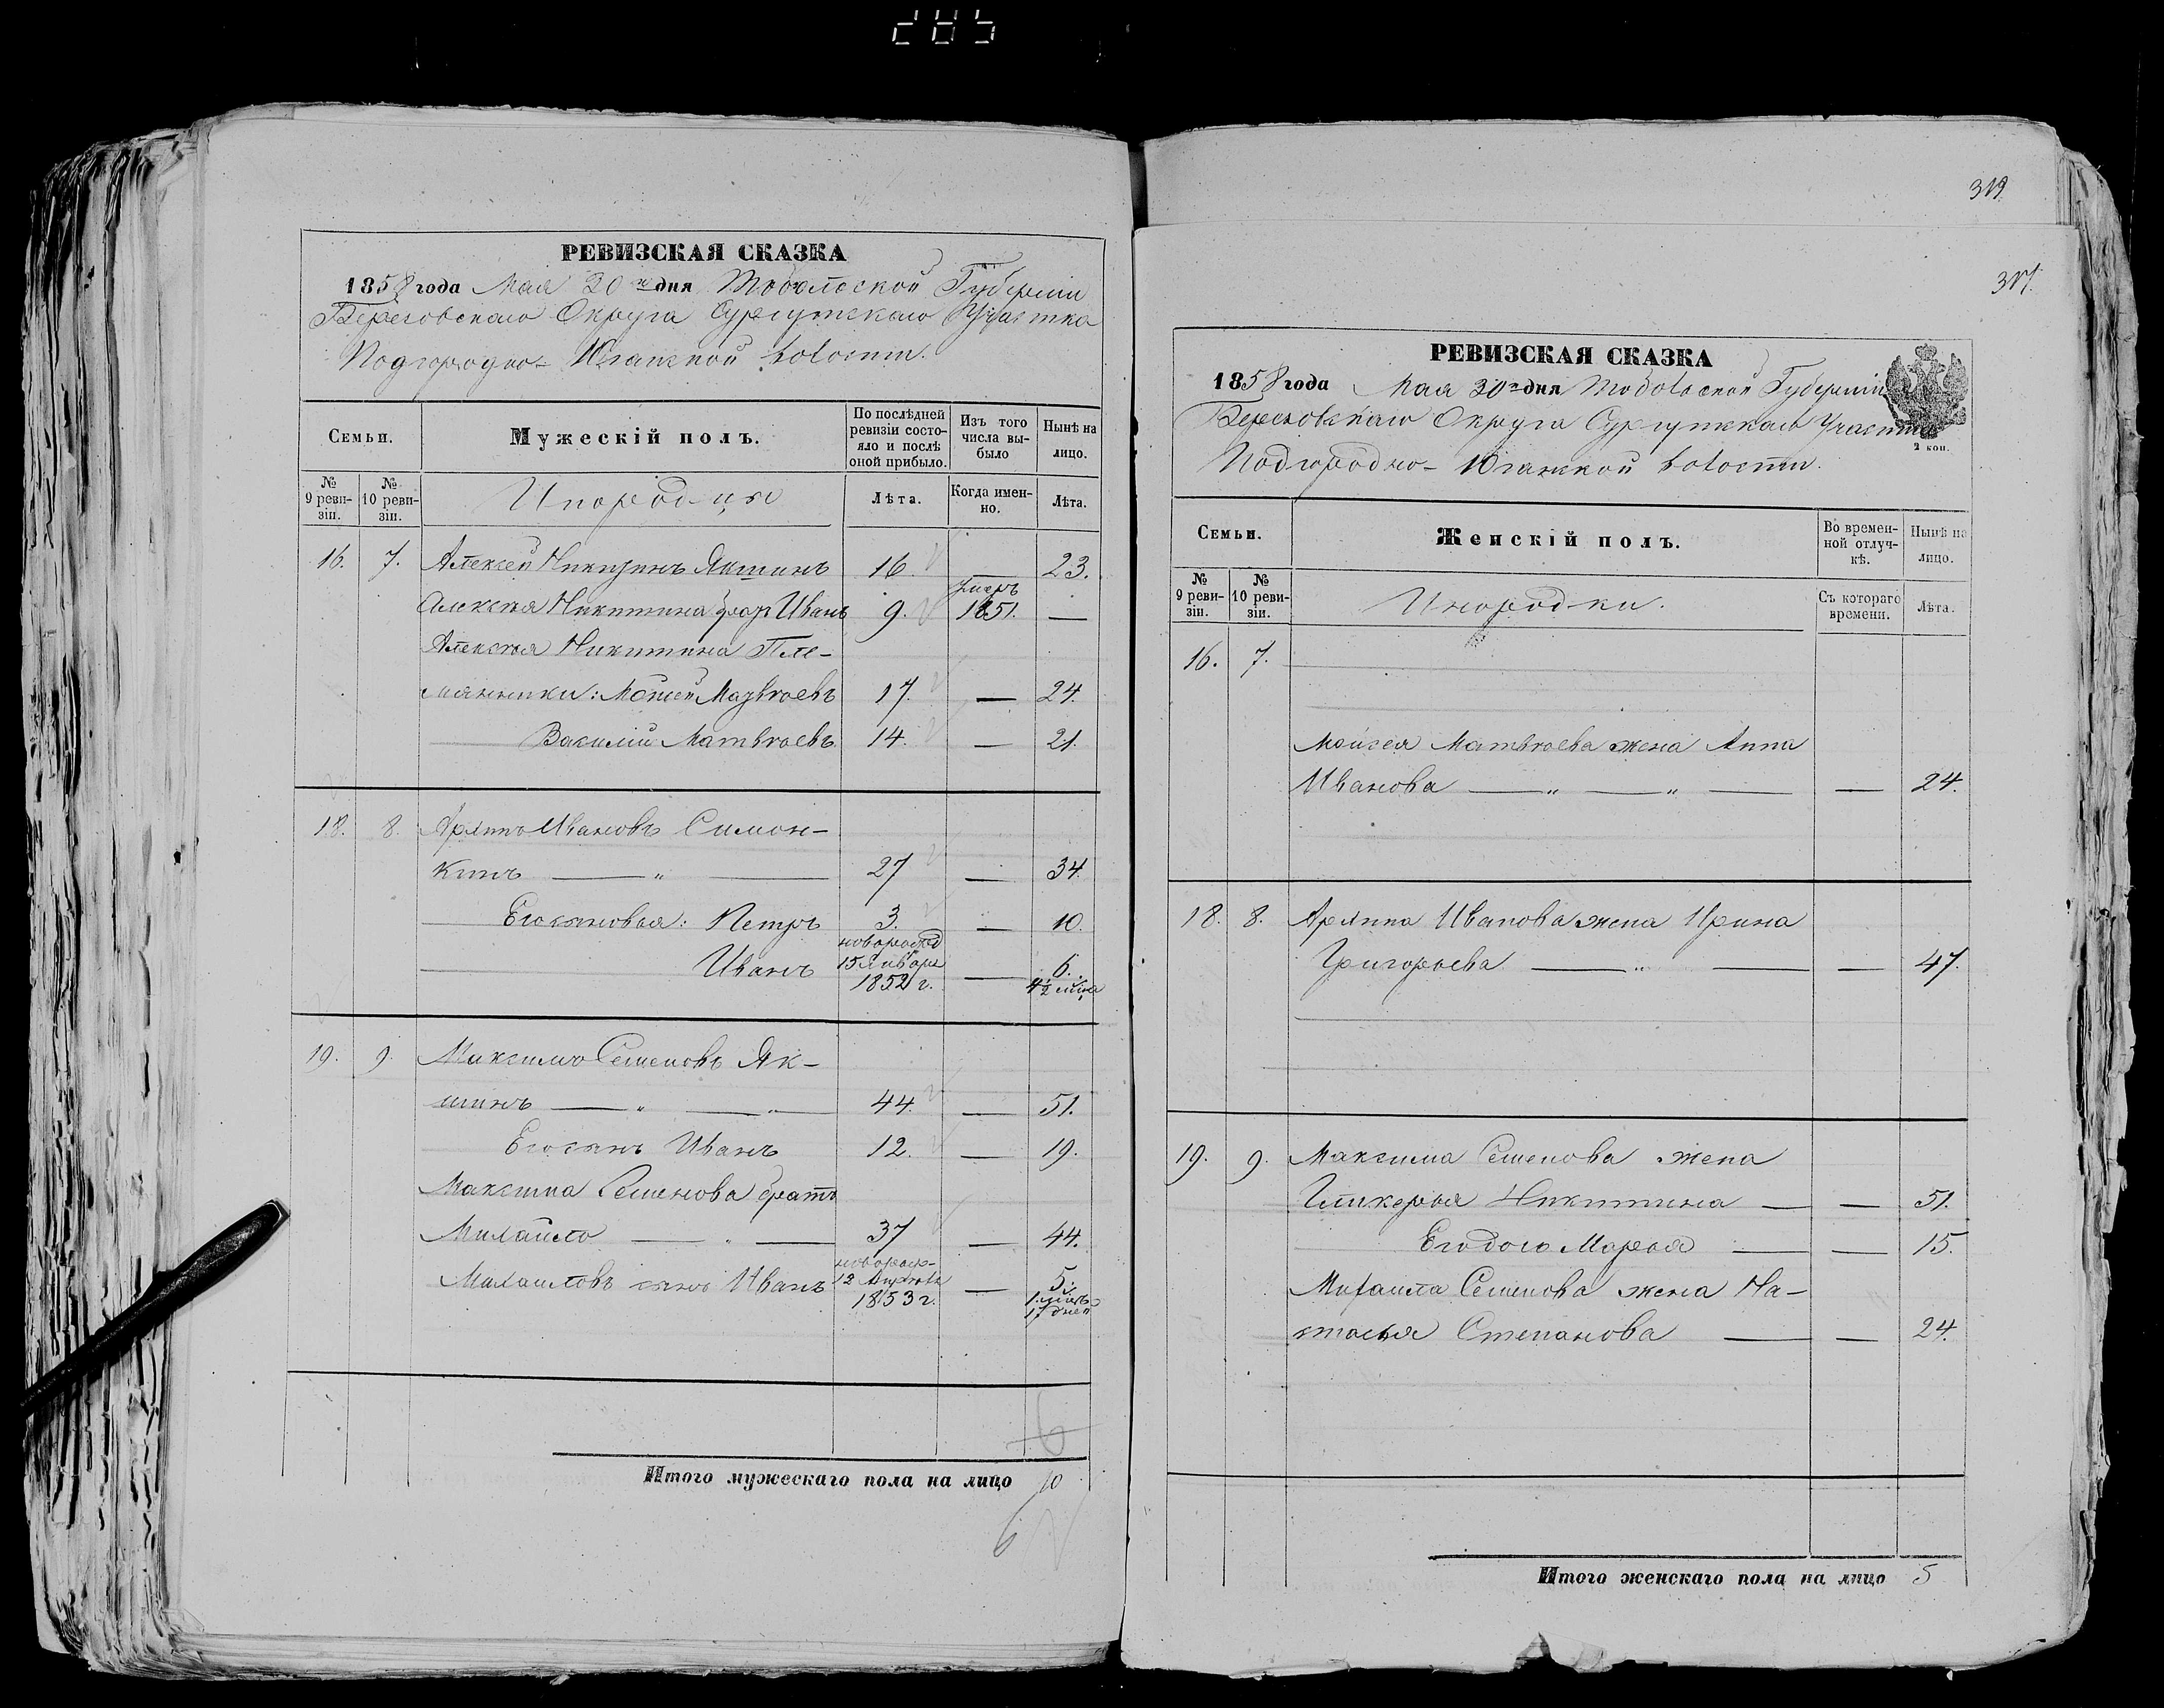 285
РЕВИЗСКАЯ СКАЗКА
1858 года Мая 30го дня Тобольской Губерніи
Березовскаго Округа Сургутскаго Участка
Подгородно-Юганской волости.
Семьи.
Мужескій полъ.
По послѣдней ревизіи состояло и послѣ оной прибыло.
Изъ того числа выбыло
Нынѣ на лицо.
№ 9 ревизіи.
№ 10 ревизіи.
Инородцы
Лѣта.
Когда именно.
Лѣта.
16. 7. Алексей Никитинъ Якшинъ 16. — 23.
Алексея Никитина братъ Иванъ 9. умеръ 1851. —
Алексея Никитина Пле-
мянники: Моисей Матвѣевъ 17. — 24.
Василій Матвѣевъ 14. — 21.
18. 8. Ивановъ Симон-
кинъ — „ — 27 — 34.
Его сыновья: Петръ 3. — 10.
Иванъ новорожд 15 Января 1852 г. — 6. 4½ мѣца
19. 9. Максимъ Семеновъ Як-
шинъ — „ — „ 44. — 51.
Его сынъ Иванъ 12. — 19.
Максима Семенова братъ
Михайло — „ — 37 — 44.
Михайловъ сынъ Иванъ новорож- 12 Апреля 1853 г. — 5. 1. мѣцъ 17 дней
Итого мужескаго пола на лицо 10
6
319
317.
РЕВИЗСКАЯ СКАЗКА
1858 года Мая 30го дня Тобольской Губерніи
Березовскаго Округа Сургутскаго Участка
2 коп.
Подгородно-Юганской волости.
Семьи.
Женскій полъ.
Во временной отлучкѣ.
Нынѣ на лицо.
№ 9 ревизіи.
№ 10 ревизіи.
Инородки.
Съ котораго времени.
Лѣта.
16. 7.
Моисея Матвѣева жена Анна
Иванова — „ — „ — — 24.
18. 8. Иванова жена Ирина
Григорьева — „ — — 47.
19. 9. Максима Семенова жена
Гликерья Никитина — — 51.
Его дочь Марья — — 15.
Михайла Семенова жена На-
стасья Степанова — — 24.
Итого женскаго пола на лицо 5